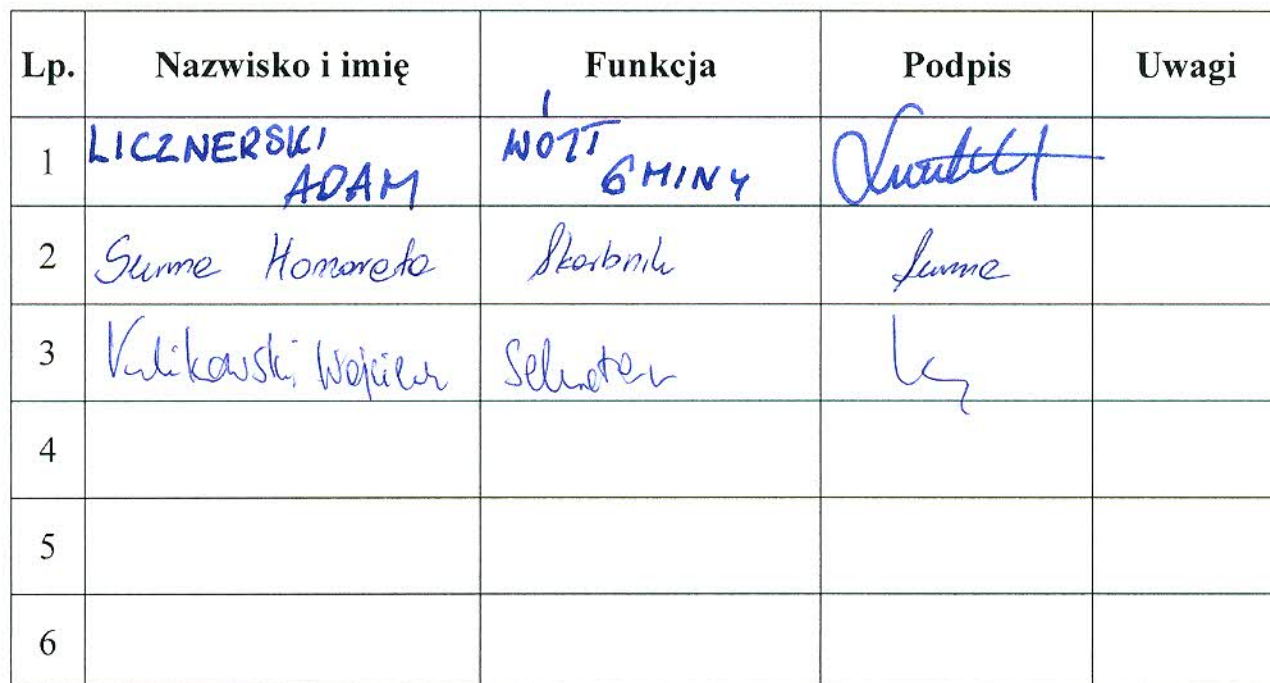 Lp. Nazwisko i imię Funkcja Podpis Uwagi
1 LICZNERSKI WÓJT
ADAM GMINY
2 Surma Honorata Skarbnik Surma
3 Kulikowski Wojciech Sekretarz
4
5
6